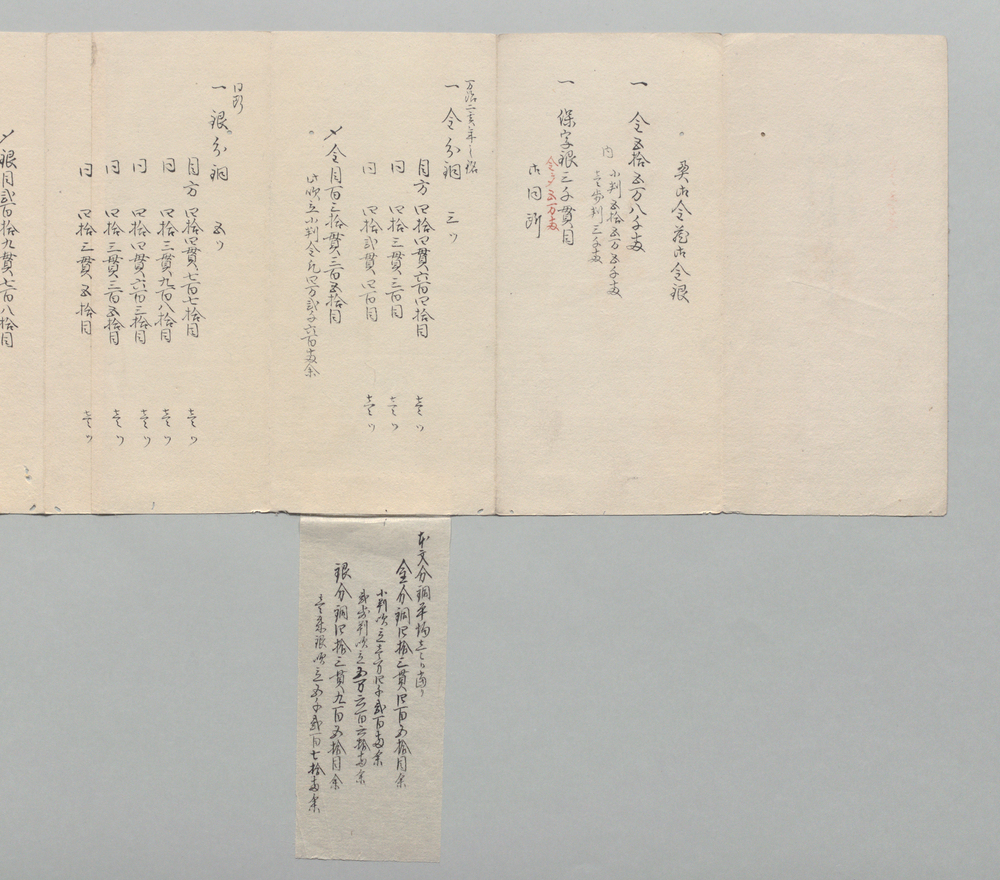 奥御金蔵御金銀
一 金五拾五万八千両
内
小判五拾五万五千両
壱歩判三千両
一 保字銀三千貫目
金ニ〆五万両
御同所
万治二亥年之鋳
一 金分銅 三ツ
目方 四拾四貫六百四拾目 壱ツ
同 四拾三貫三百目 壱ツ
同 四拾弐貫四百目 壱ツ
〆金目百三拾貫三百五拾目
此吹立小判金凡四万弐千六百両余
同断
一 銀分銅 五ツ
目方 四拾四貫七百七拾目 壱ツ
同 四拾三貫九百八拾目 壱ツ
同 四拾四貫六百三拾目 壱ツ
同 四拾三貫三百五拾目 壱ツ
同 四拾三貫五拾目 壱ツ
〆銀目弐百拾九貫七百八拾目
本文分銅平均壱ツ当り
金分銅四拾三貫四百五拾目余
小判吹立壱万四千弐百両余
弐歩判吹立五万六百六拾両余
銀分銅四拾三貫九百五拾目余
壱朱銀吹立五千弐百七拾両余